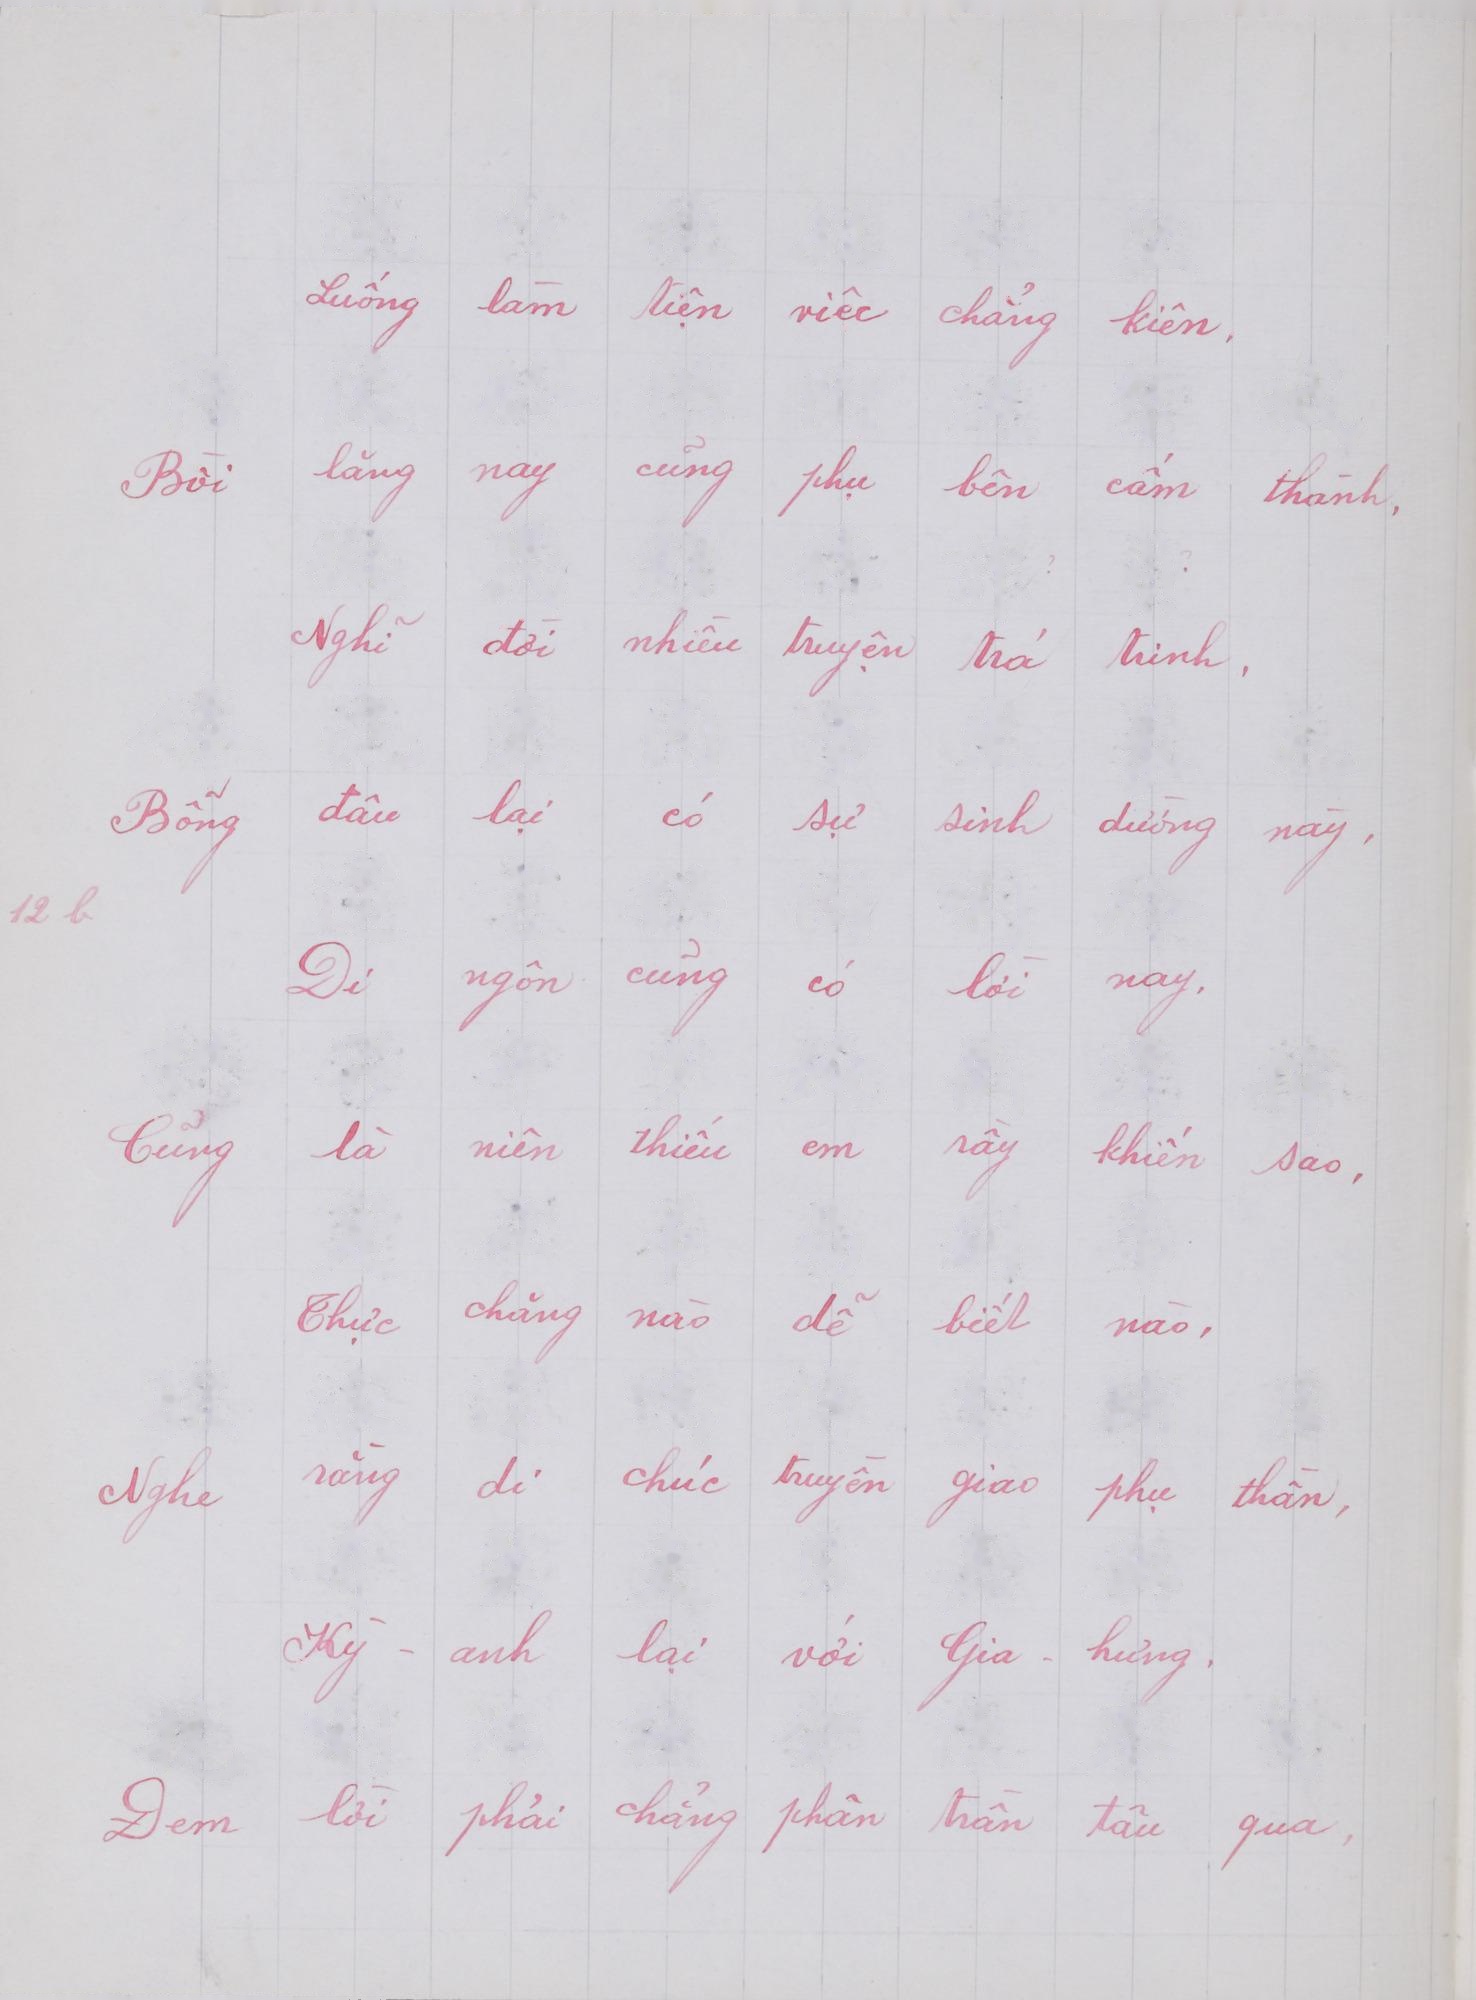 Luống làm tiện viêc chẳng kiên,
Bồi lăng nay cũng phụ bên cấm thành,
? ?
Nghĩ đời nhiều truyện trá trinh,
Bỗng đâu lại có sự sinh dường này,
12 b
Di ngôn cũng có lời nay,
Cũng là niên thiếu em rầy khiến sao,
Thực chăng nào dễ biết nào,
Nghe rằng di chúc truyền giao phụ thần,
Kỳ - anh lại với Gia - hưng,
Đem lời phải chẳng phân trần tâu qua,